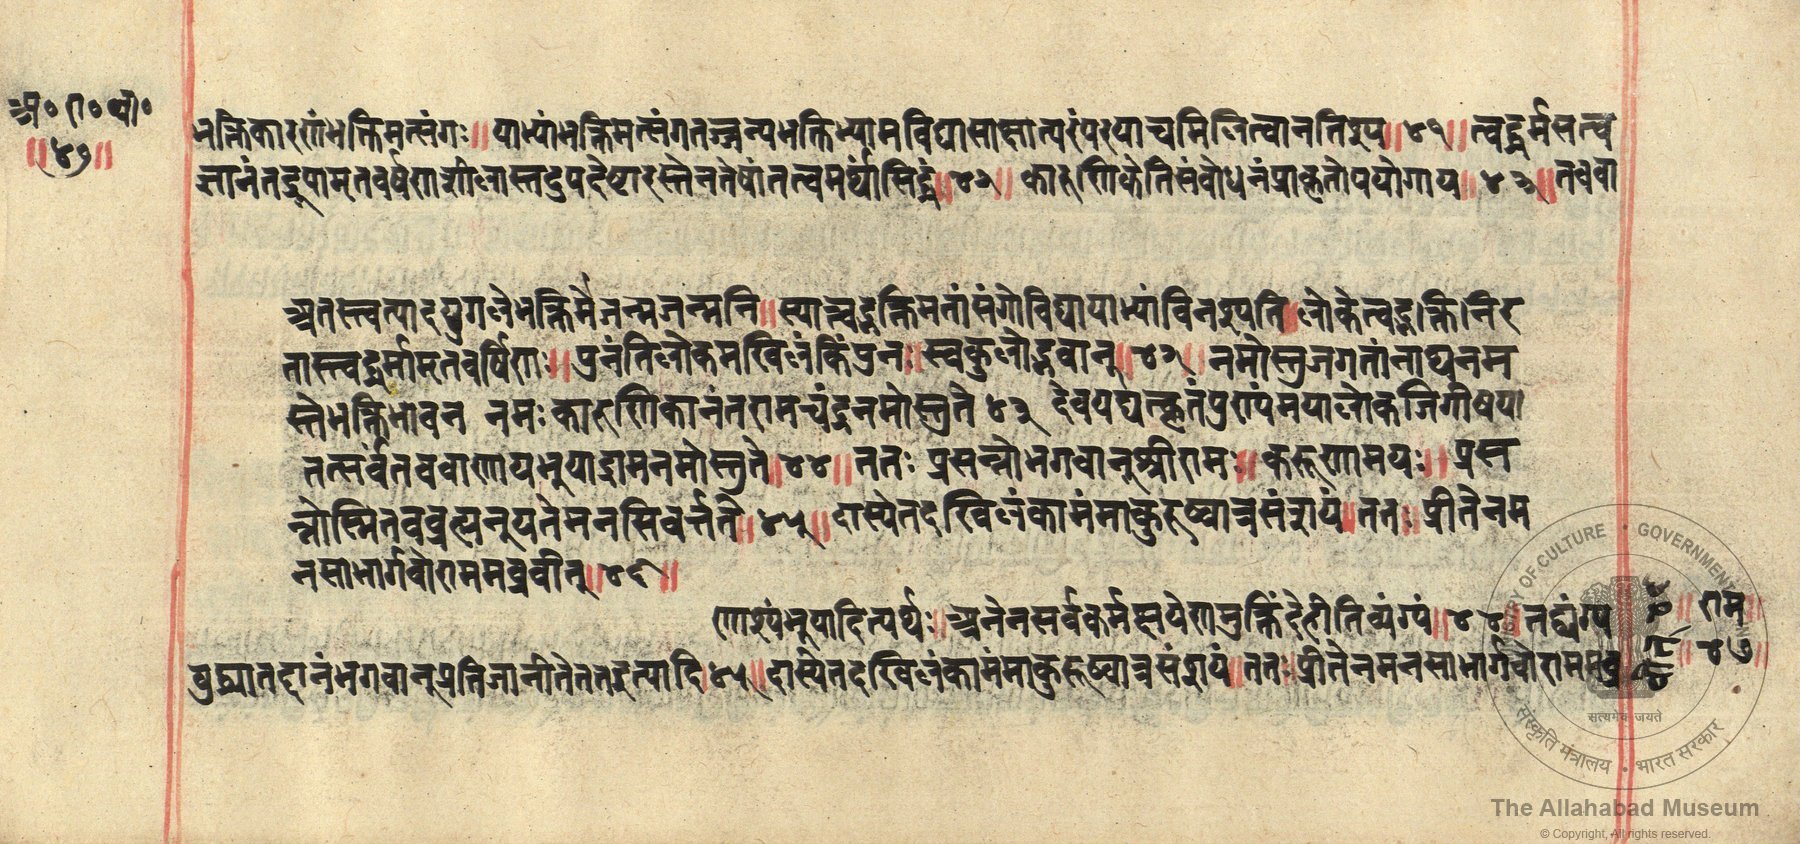 अ॰ रा॰ बा॰
॥४७॥
भक्तिकारणंभक्तिमत्संगः॥ याभ्यांभक्तिमत्संगतज्जन्यभक्तिभ्यामविद्यासाक्षात्परंपरयाचमिलित्वानतिश्य॥४१॥ त्वद्धर्मसत्त्व
ज्ञानंतद्रूपामृतवर्षणशीलास्तदुपदेष्टारस्तेनतेषांतत्त्वमर्थासिद्धं॥४२॥ कारुणिकेतिसंबोधनंप्राकृतोपयोगाय॥४३॥तवबा
अतस्त्वत्पादयुगलेभक्तिर्मेजन्मजन्मनि॥ स्यात्त्वद्भक्तिमतांसंगोविद्यायाभ्यांविनश्यति॥लोकेत्वद्भक्तिनिर
तास्त्वद्धर्मामृतवर्षिणः॥ पुनंतिलोकमखिलंकिंपुनः॥स्वकुलोद्भवान्॥४२॥ नमोस्तुजगतांनाथनम
स्तेभक्तिभावन नमःकारुणिकानंतरामचंद्रनमोस्तुते ४३ देवयद्यत्कृतंपुण्यंमयालोकजिगीषया
तत्सर्वंतवबाणायभूयाद्रामनमोस्तुते॥४४॥ ततः प्रसन्नोभगवान्श्रीरामः॥ करुणामयः॥ प्रसन्
न्नोस्मितवब्रह्मन्यत्तेमनसिवर्त्तते॥४५॥ दास्येतदखिलंकामंमाकुरुष्वात्रसंशयं॥ ततः॥ प्रीतेनम
नसाभार्गवोराममब्रवीत्॥४६॥
णाश्यंभूयादित्यर्थः॥ अनेनसर्वकर्मक्षयेणमुक्तिंदेहीतिव्यंग्यं॥४४॥ तद्व्यंग्य
बुध्यातद्दानंभगवान्प्रतिजानीतेततइत्यादि॥४५॥दास्येतदखिलंकामंमाकुरुष्वात्रसंशयं॥ ततः॥प्रीतेनमनसाभार्गवोराममब्र
॥ राम॥
॥४७॥
MINISTRY OF CULTURE • GOVERNMENT OF INDIA
सत्यमेव जयते
संस्कृति मंत्रालय • भारत सरकार
The Allahabad Museum
© Copyright, All rights reserved.